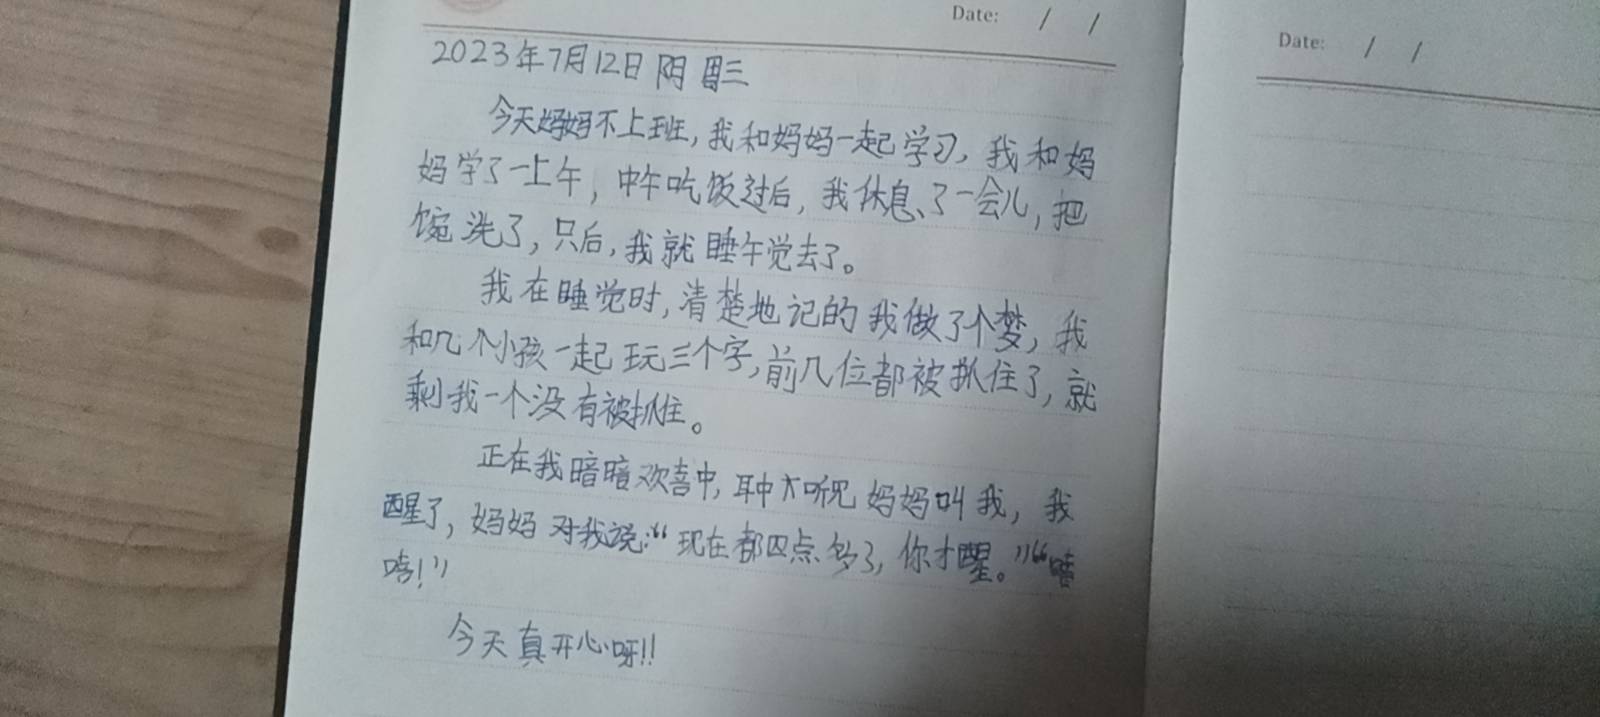 Date: / /
Date: / /
2023年7月12日 阴 周三
今天妈妈不上班，我和妈妈一起学习，我和妈
妈学了一上午，中午吃饭过后，我休息了一会儿，把
碗洗了，只后，我就睡午觉去了。
我在睡觉时，清楚地记的我做了个梦，我
和几个小孩一起玩三个字，前几位都被抓住了，就
剩我一个没有被抓住。
正在我暗暗欢喜中，听见妈妈叫我，我
醒了，妈妈对我说：“现在都四点多了，你才醒。”“嘻
嘻！”
今天真开心呀!!